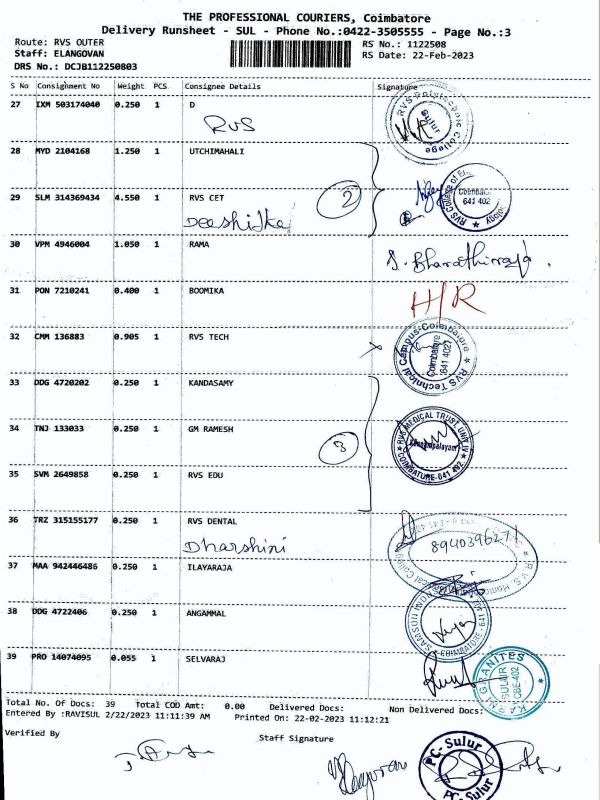 THE PROFESSIONAL COURIERS, Coimbatore
Delivery Runsheet - SUL - Phone No.:0422-3505555 - Page No.:3
Route: RVS OUTER RS No.: 1122508
Staff: ELANGOVAN RS Date: 22-Feb-2023
DRS No.: DCJB112250803
S No Consignment No Weight PCS Consignee Details Signature
27 IXM 503174040 0.250 1 D
RVS
RVS Polytechnic College Sulur
28 MYD 2104168 1.250 1 UTCHIMAHALI
29 SLM 314369434 4.550 1 RVS CET
2
641 402
Deeshitka
30 VPM 4946004 1.050 1 RAMA
S. Bharathiraja.
31 PON 7210241 0.400 1 BOOMIKA
H/R
32 CMM 136883 0.905 1 RVS TECH
RVS Technical Campus-Coimbatore Coimbatore 641 402
33 DDG 4720202 0.250 1 KANDASAMY
34 TNJ 133033 0.250 1 GM RAMESH
3
RVS MEDICAL TRUST
COIMBATORE-641 402
35 SVM 2649858 0.250 1 RVS EDU
36 TRZ 315155177 0.250 1 RVS DENTAL
Dharshini
37 MAA 942446486 0.250 1 ILAYARAJA
38 DDG 4722406 0.250 1 ANGAMMAL
39 PRO 14074095 0.055 1 SELVARAJ
GRANITES SULUR CBE-402
Total No. Of Docs: 39 Total COD Amt: 0.00 Delivered Docs: Non Delivered Docs:
Entered By :RAVISUL 2/22/2023 11:11:39 AM Printed On: 22-02-2023 11:12:21
Verified By Staff Signature
PC-Sulur
PC-Sulur